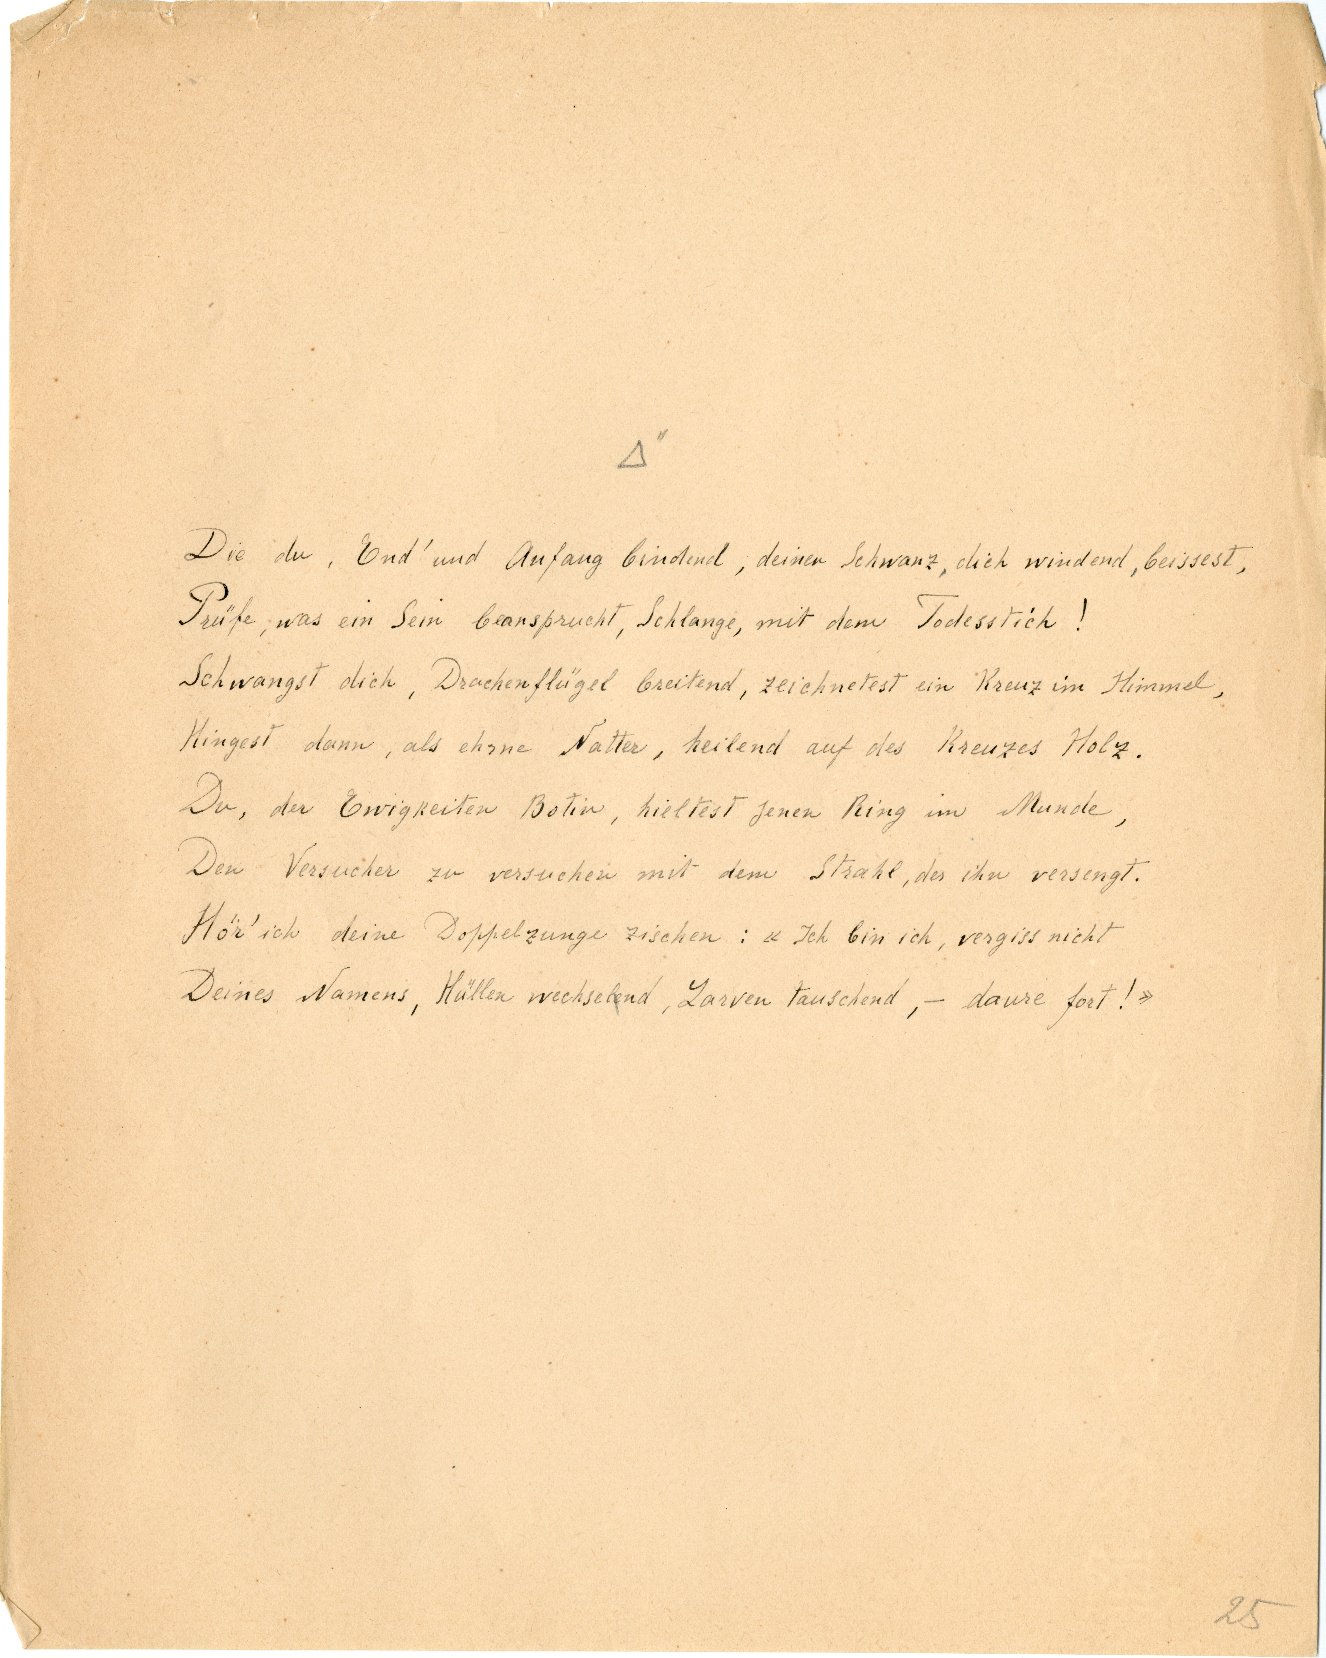 Δ"
Die du, End' und Anfang bindend, deinen Schwanz, dich windend, beissest,
Prüfe, was ein Sein beansprucht, Schlange, mit dem Todesstich!
Schwangst dich, Drachenflügel breitend, zeichnetest ein Kreuz im Himmel,
Hingest dann, als ehrne Natter, heilend auf des Kreuzes Holz.
Du, der Ewigkeiten Botin, hieltest jenen Ring im Munde,
Den Versucher zu versuchen mit dem Strahl, der ihn versengt.
Hör' ich deine Doppelzunge zischen: « Ich bin ich, vergiss nicht
Deines Namens, Hüllen wechselnd, Larven tauschend, – daure fort! »
25